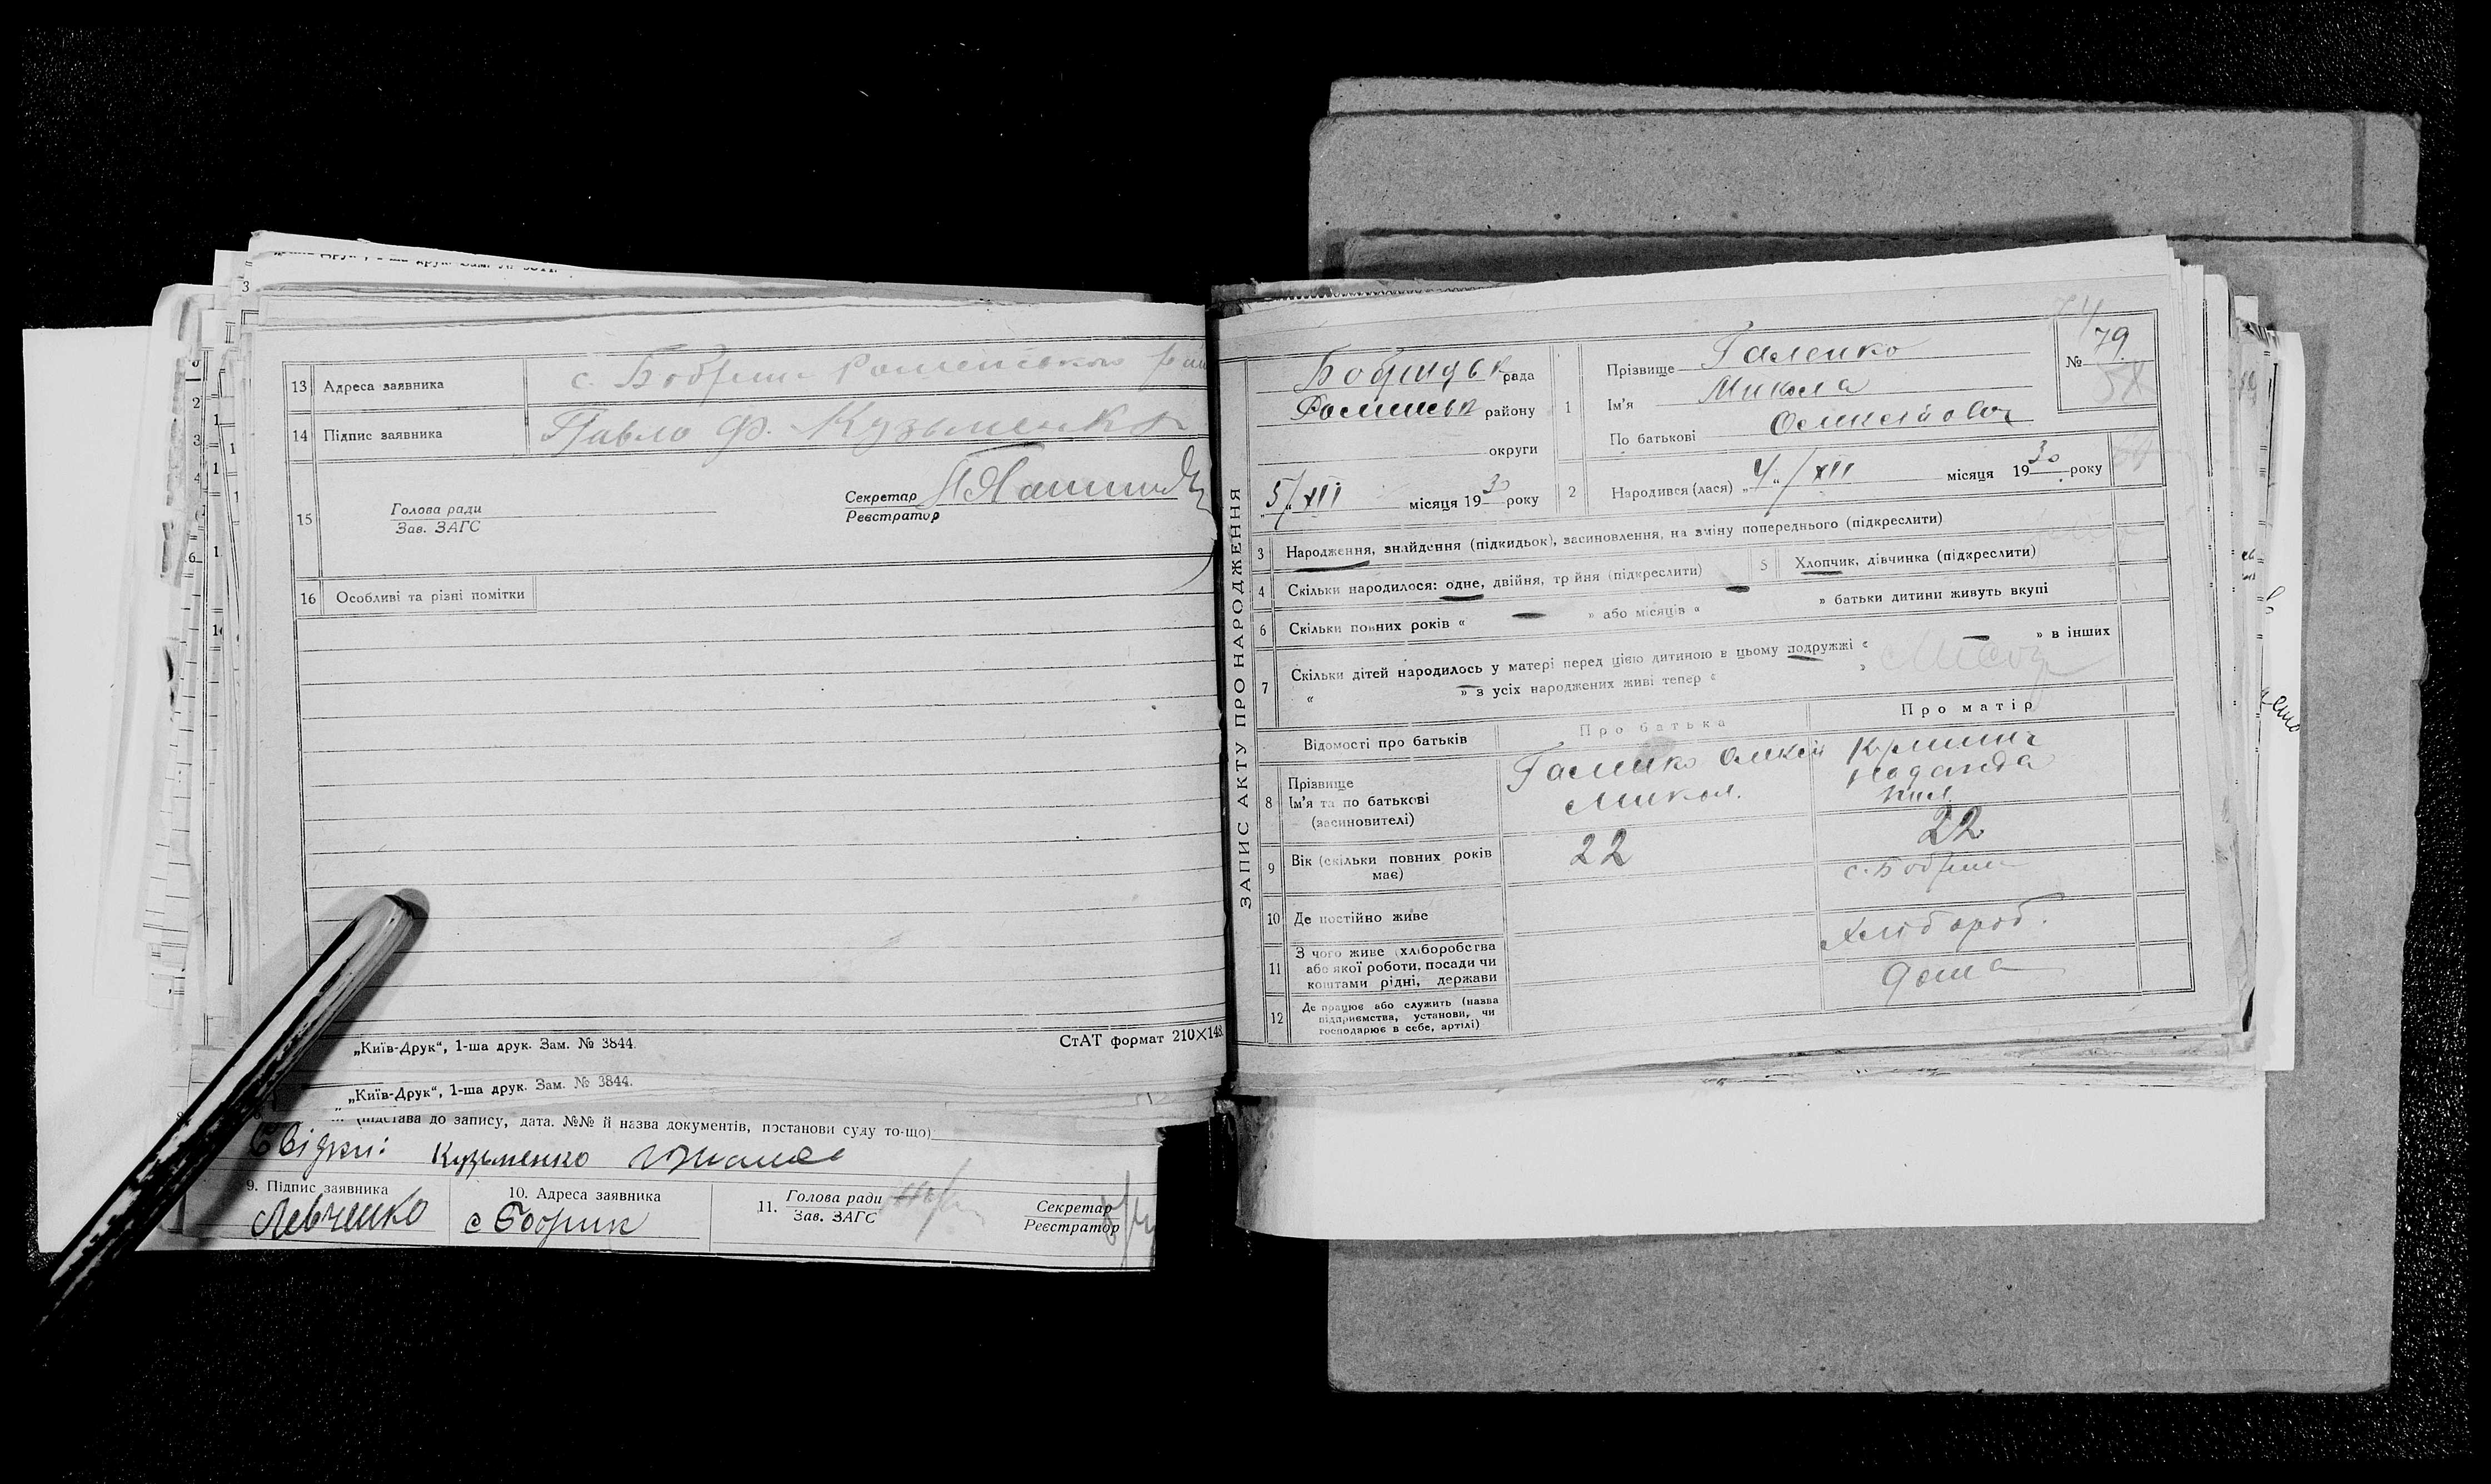 13 Адреса заявника с. Бобрик Роменського рай
14 Підпис заявника Павло Ф. Кузьменко
15 Голова ради
Зав. ЗАГС
Секретар
Реєстратор
16 Особливі та різні помітки
„Київ-Друк“, 1-ша друк. Зам. № 3844.
СтАТ формат 210×148.
„Київ-Друк“, 1-ша друк. Зам. № 3844.
(підстава до запису, дата. №№ й назва документів, постанови суду то-що)
Свідки: Кузьменко
9. Підпис заявника
Левченко
10. Адреса заявника
с Бобрик
11. Голова ради
Зав. ЗАГС
Секретар
Реєстратор
ЗАПИС АКТУ ПРО НАРОДЖЕННЯ
Бобрицьк рада
Роменськ району
округи
5/XII місяця 1930 року
1 Прізвище Галенко
Ім'я Микола
По батькові Олексійович
№ 79
2 Народився (лася) „4“/XII місяця 1930 року
3 Народження, знайдення (підкидьок), засиновлення, на зміну попереднього (підкреслити)
4 Скільки народилося: одне, двійня, трійня (підкреслити)
5 Хлопчик, дівчинка (підкреслити)
6 Скільки повних років « — » або місяців « — » батьки дитини живуть вкупі
7 Скільки дітей народилось у матері перед цією дитиною в цьому подружжі « — » в інших
« — » з усіх народжених живі тепер « »
Відомості про батьків
Про батька
Про матір
8 Прізвище
Ім'я та по батькові
(засиновителі)
Галенко Олексій
Микол.
Надежда
9 Вік (скільки повних років має)
22
22
10 Де постійно живе
с. Бобрик
11 З чого живе (хліборобства
або якої роботи, посади чи
коштами рідні, держави
Хлібороб.
12 Де працює або служить (назва
підприємства, установи, чи
господарює в себе, артілі)
дома